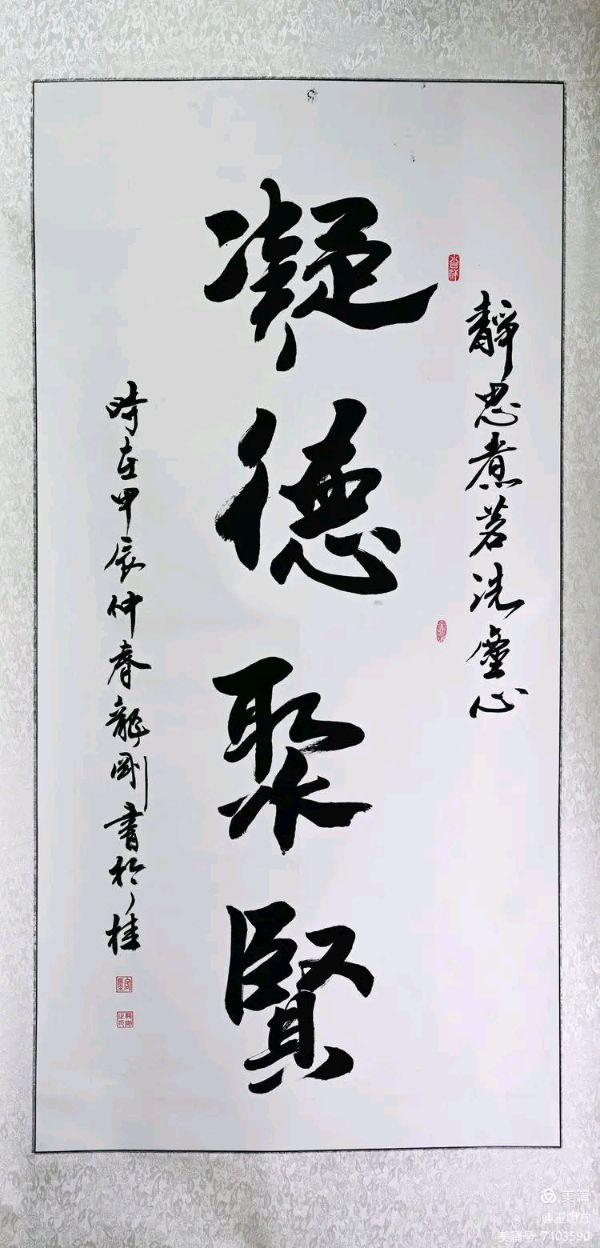 靜思煮茗洗塵心
凝德聚賢
時在甲辰仲春龍剛書於桂
美篇
美篇号: 7403590